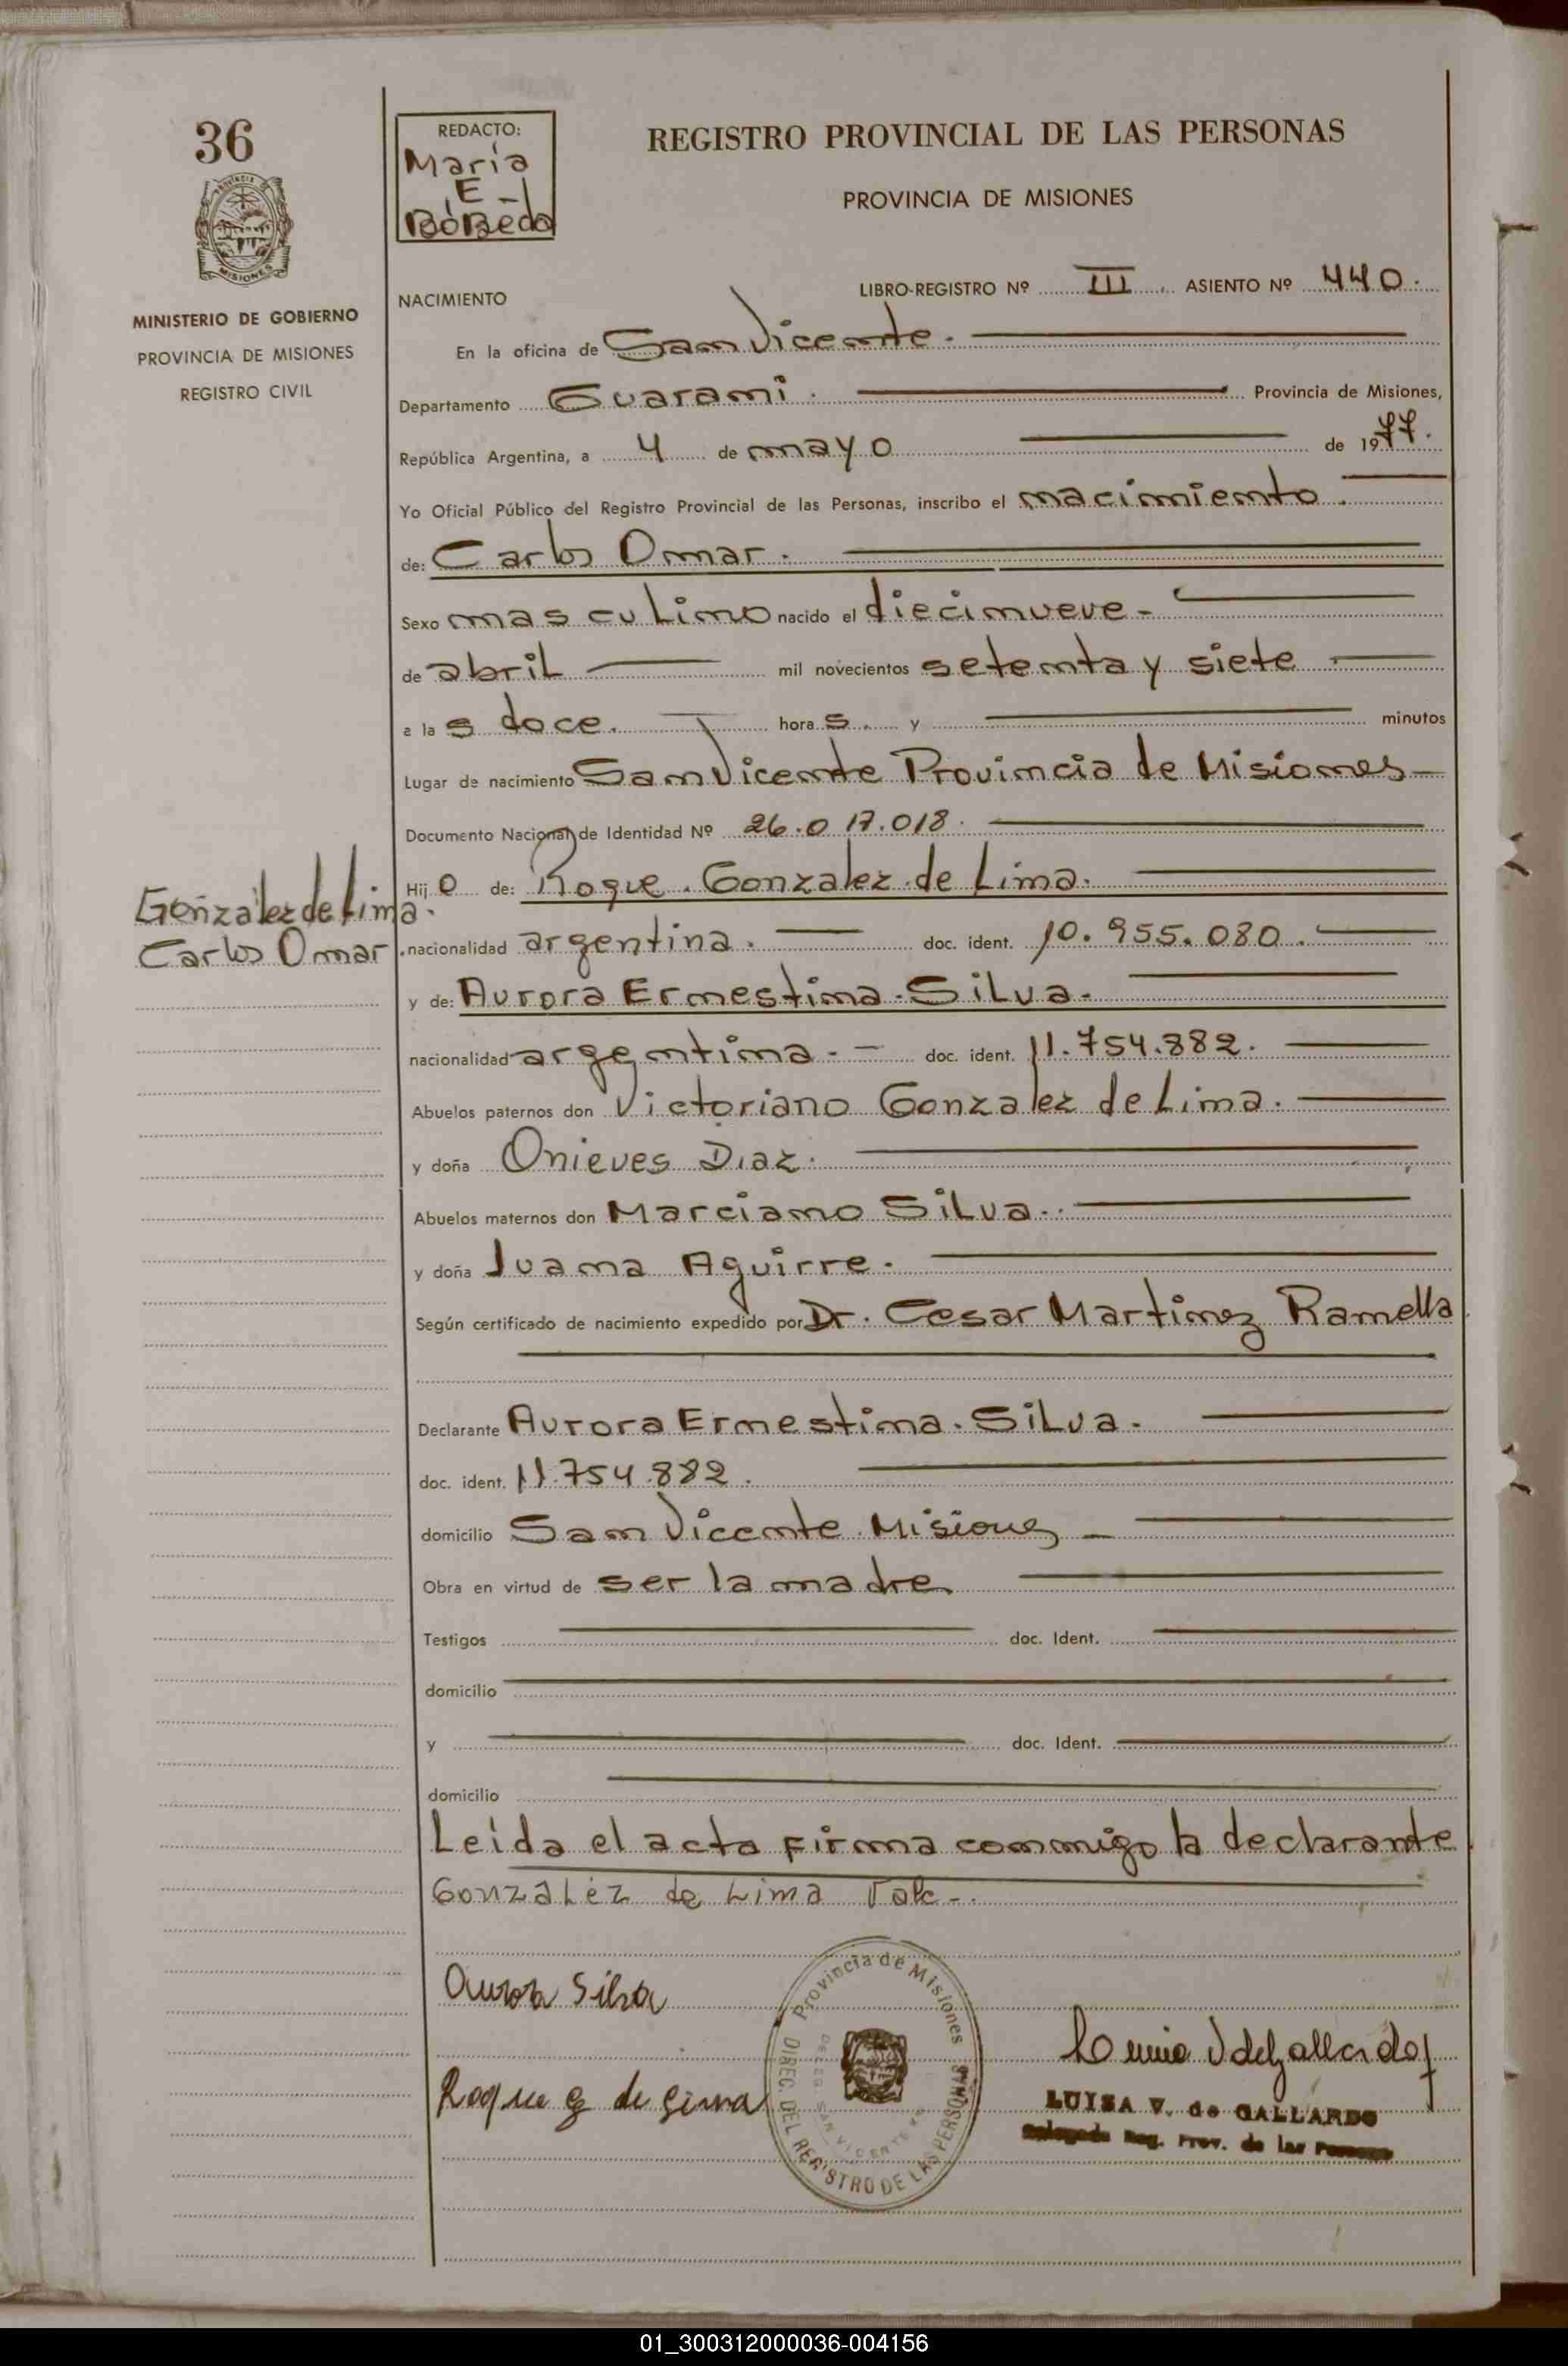 36
PROVINCIA DE
MISIONES
MINISTERIO DE GOBIERNO
PROVINCIA DE MISIONES
REGISTRO CIVIL
REDACTO:
María
E -
BóBeda
REGISTRO PROVINCIAL DE LAS PERSONAS
PROVINCIA DE MISIONES
NACIMIENTO
LIBRO-REGISTRO Nº III ASIENTO Nº 440.
En la oficina de San Vicente.
Departamento Guarani. Provincia de Misiones,
República Argentina, a 4 de mayo de 1977.
Yo Oficial Público del Registro Provincial de las Personas, inscribo el nacimiento.
de: Carlos Omar.
Sexo masculino nacido el diecinueve -
de abril mil novecientos setenta y siete
a las doce. horas. y minutos
Lugar de nacimiento San Vicente Provincia de Misiones
Documento Nacional de Identidad Nº 26.017.018.
Hijo de: Roque. Gonzalez de Lima.
Gonzalez de Lima.
Carlos Omar
nacionalidad argentina. doc. ident. 10.955.080.
y de: Aurora Ernestina. Silva.
nacionalidad argentina. - doc. ident. 11.754.882.
Abuelos paternos don Victoriano Gonzalez de Lima.
y doña Onieves Diaz.
Abuelos maternos don Marciano Silva.
y doña Juana Aguirre.
Según certificado de nacimiento expedido por Dr. Cesar Martinez Ramella
Declarante Aurora Ernestina. Silva.
doc. ident. 11.754.882.
domicilio San Vicente Misiones
Obra en virtud de ser la madre
Testigos doc. Ident.
domicilio
y doc. Ident.
domicilio
Leida el acta firma conmigo la declarante
Gonzalez de Lima Vale -.
Aurora Silva
Roque G de Lima
Provincia de Misiones
DIREC. DEL REGISTRO DE LAS PERSONAS
DELEG. SAN VICENTE
LUISA V. de GALLARDO
Delegada Reg. Prov. de las Personas
01_300312000036-004156